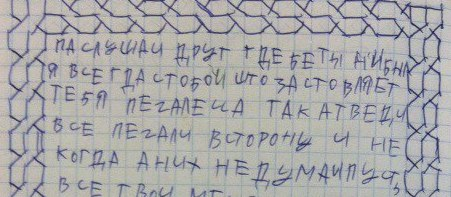 ПАСЛУШАЙ ДРУГ ГДЕ БЕ ТЫ НИ БЫЛ
Я ВСЕГДА СТОБОЙ ШТО ЗАСТОВЛЯЕТ
ТЕБЯ ПЕГАЛЕЦА ТАК АТВЕДИ
ВСЕ ПЕГАЛИ ВСТОРОНУ И НЕ
КОГДА А НИХ НЕ ДУМАЙ ПУСТЬ
ВСЕ ТВОИ